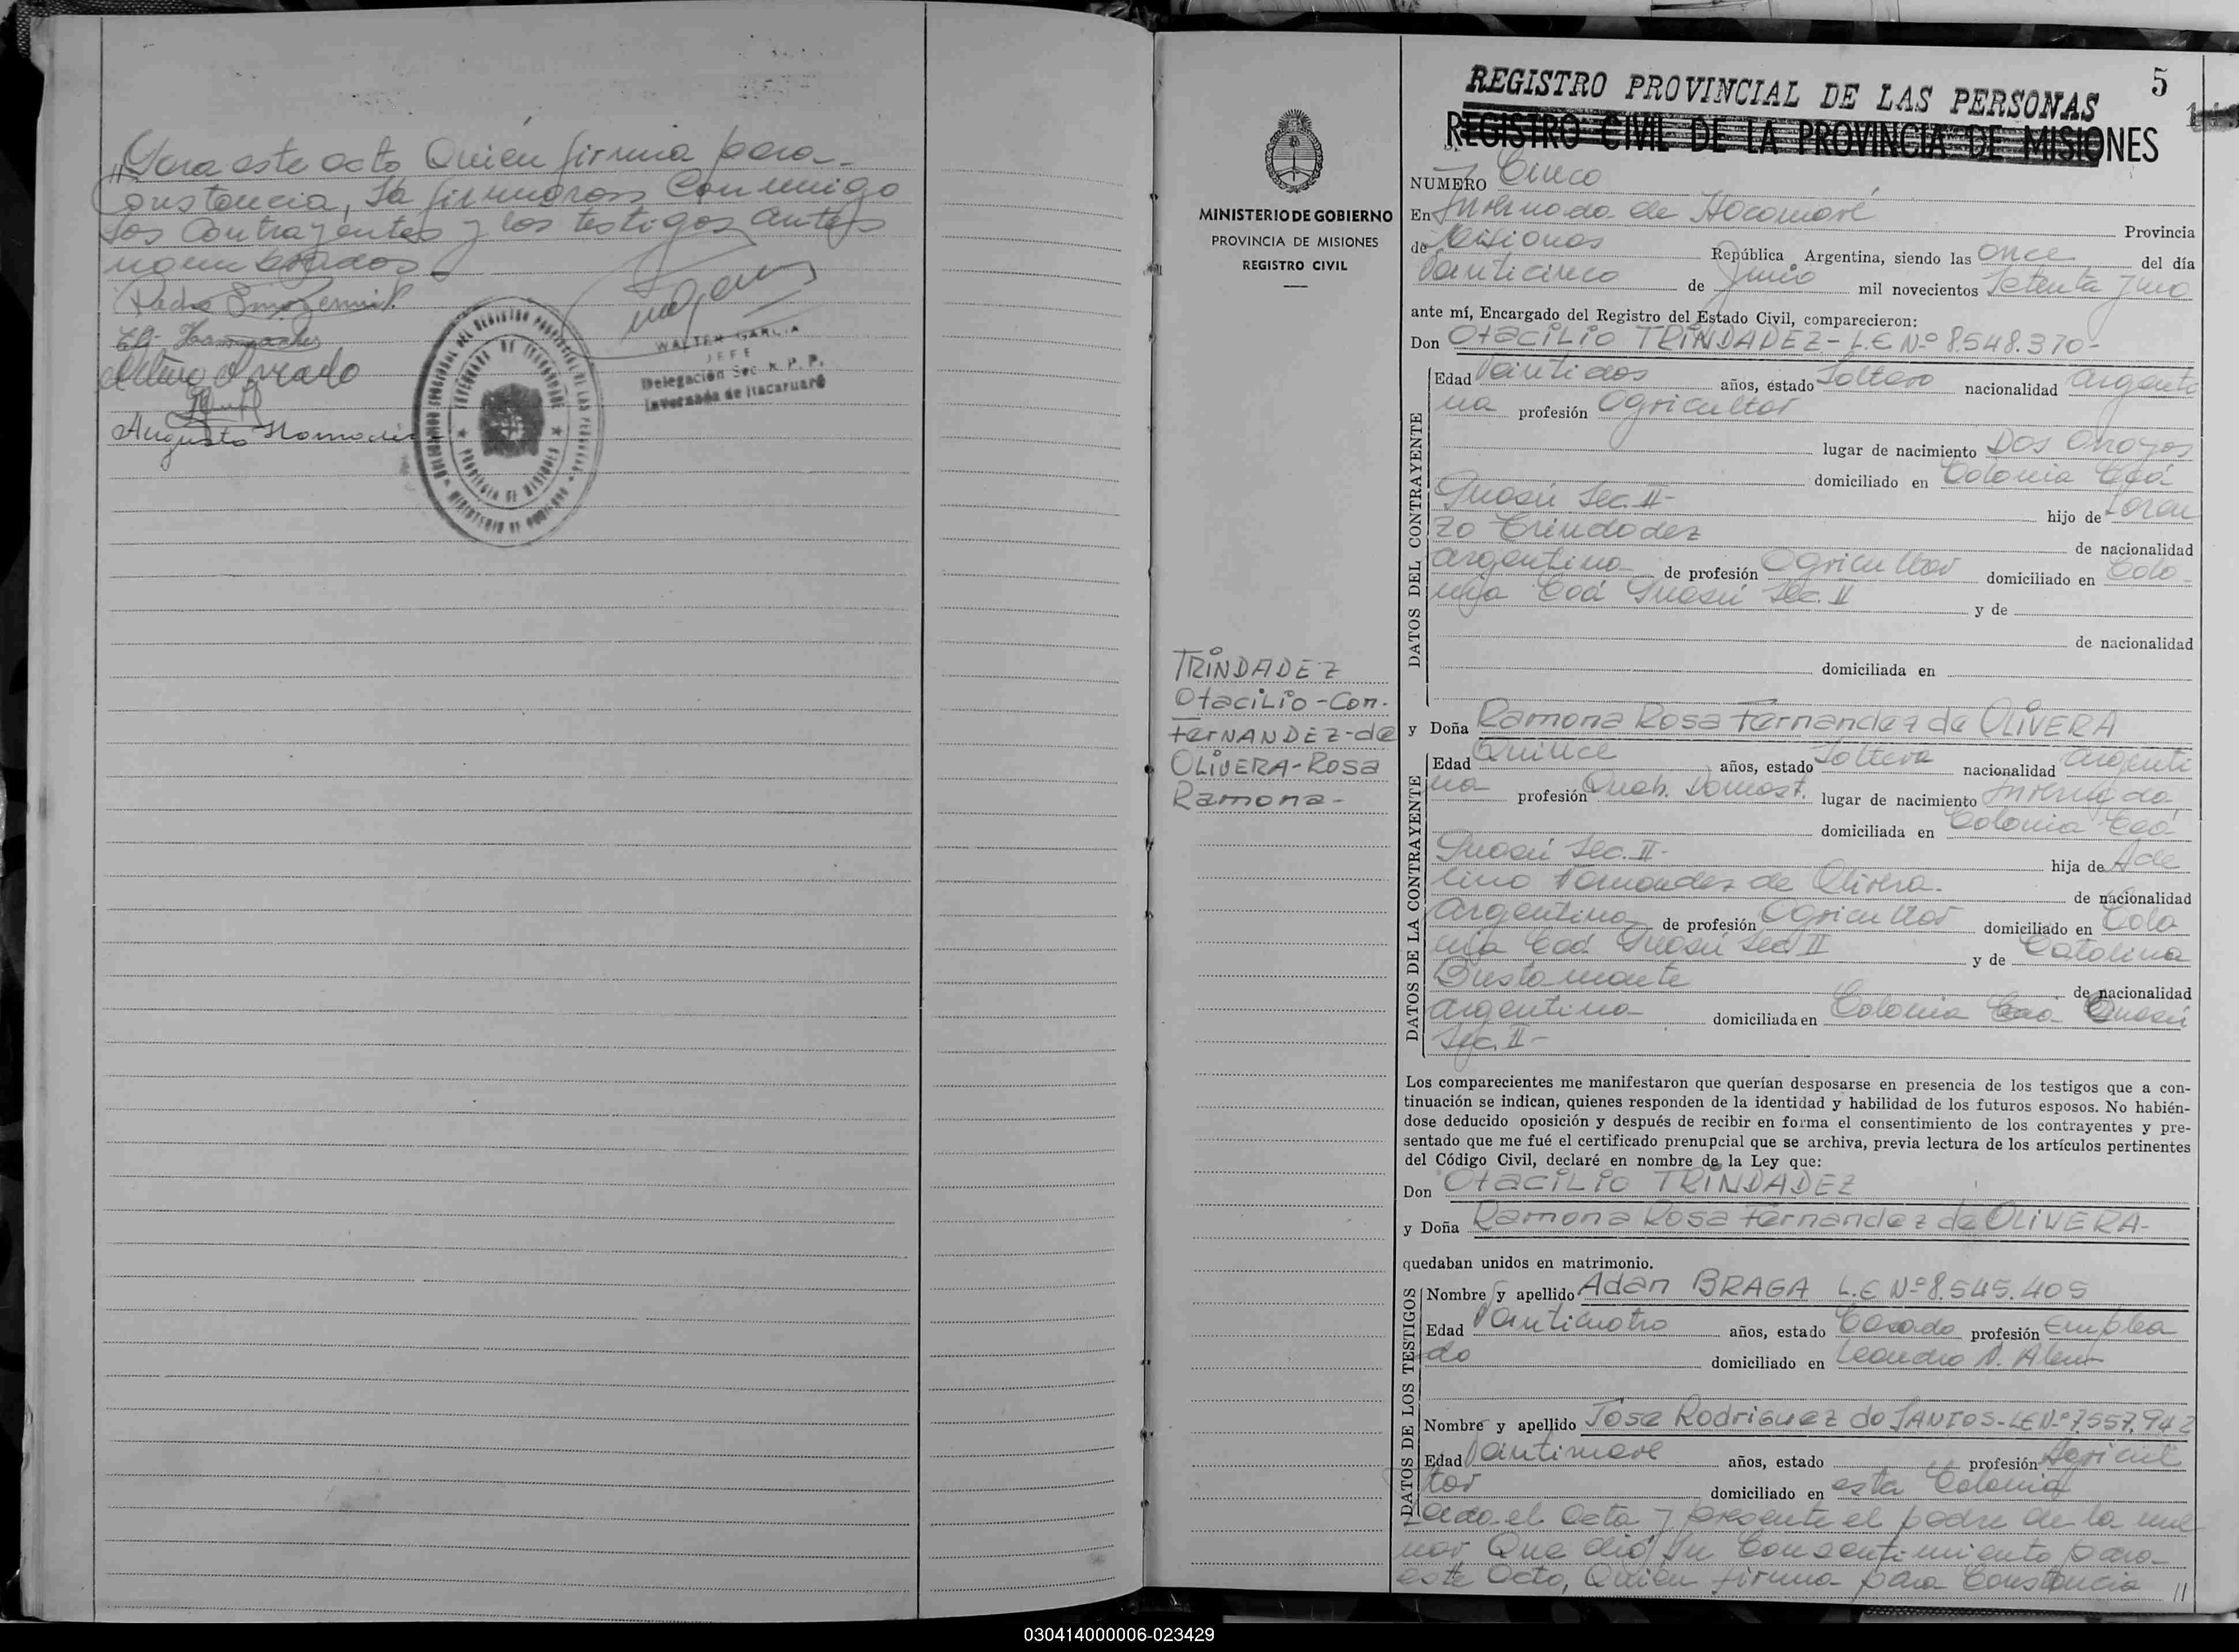 "Para este acto Quién firma para-
Constancia, La firmaron Conmigo
Los Contrayentes y los testigos antes
nombrados-
Augusto
WALTER GARCIA
JEFE
Delegación Sec. R. P. P.
Invernada de Itacaruaré
PROVINCIA DE MISIONES
5
REGISTRO PROVINCIAL DE LAS PERSONAS
REGISTRO CIVIL DE LA PROVINCIA DE MISIONES
MINISTERIO DE GOBIERNO
PROVINCIA DE MISIONES
REGISTRO CIVIL
TRINDADEZ
Otacilio-Con-
FERNANDEZ-de
OLIVERA-Rosa
Ramona-
NUMERO Cinco
En Invernada de Provincia
de Misiones República Argentina, siendo las once del día
Veinticinco de Junio mil novecientos Setenta y uno
ante mí, Encargado del Registro del Estado Civil, comparecieron:
Don Otacilio TRINDADEZ- L.E Nº 8.548.370-
DATOS DEL CONTRAYENTE
Edad Veintidos años, estado Soltero nacionalidad argenti
na profesión Agricultor
lugar de nacimiento Dos Arroyos
domiciliado en Colonia Caá
Guasú Sec. II- hijo de Loren
zo Trindadez de nacionalidad
argentina de profesión Agricultor domiciliado en Colo-
nia Caá Guasú Sec. II y de
de nacionalidad
domiciliada en
y Doña Ramona Rosa Fernandez de OLIVERA
DATOS DE LA CONTRAYENTE
Edad Quince años, estado Soltera nacionalidad argenti
na profesión Queh. Domest. lugar de nacimiento Invernada
domiciliada en Colonia Caá
Guasú Sec. II- hija de Ade
lino Fernandez de Olivera. de nacionalidad
argentina de profesión Agricultor domiciliado en Colo-
nia Caá Guasú Sec II y de Catalina
Bustamante de nacionalidad
argentina domiciliada en Colonia Caá Guasú
Sec. II-
Los comparecientes me manifestaron que querían desposarse en presencia de los testigos que a con-
tinuación se indican, quienes responden de la identidad y habilidad de los futuros esposos. No habién-
dose deducido oposición y después de recibir en forma el consentimiento de los contrayentes y pre-
sentado que me fué el certificado prenupcial que se archiva, previa lectura de los artículos pertinentes
del Código Civil, declaré en nombre de la Ley que:
Don Otacilio TRINDADEZ
y Doña Ramona Rosa Fernandez de OLIVERA-
quedaban unidos en matrimonio.
DATOS DE LOS TESTIGOS
Nombre y apellido Adan BRAGA L.E Nº 8.545.405
Edad Veinticuatro años, estado Casado profesión Emplea
do domiciliado en Leandro N. Alem
Nombre y apellido José Rodriguez do SANTOS-LE Nº 7.557.942
Edad Veintinueve años, estado profesión Agricul
tor domiciliado en esta Colonia
Leida el Acta y presente el padre de la me
nor Que dió su Consentimiento para-
este Acto, Quién firma para Constancia //
030414000006-023429